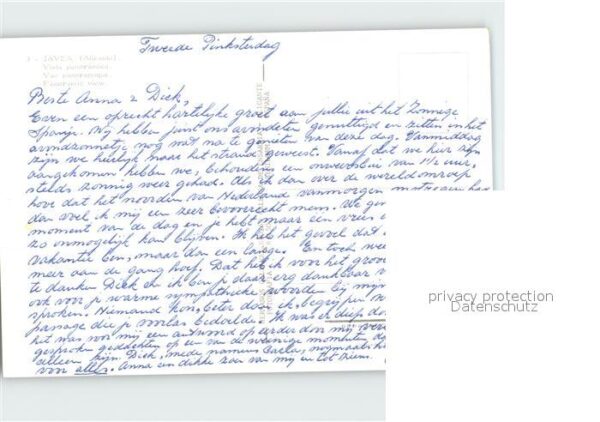 Tweede Pinksterdag
3 - JAVEA (Alicante)
Vista panorámica.
Vue panoramique.
Panoramic view.
Beste Anna & Dick,
Even een oprecht hartelijke groet aan jullie uit het Zonnige
Spanje. Wij hebben juist ons avondeten genuttigd en zitten in het
avondzonnetje nog wat na te genieten van deze dag. Vanmiddag
zijn we heerlijk naar het strand geweest. Vanaf dat we hier zijn
aangekomen hebben we, behoudens een onweersbui van 1½ uur,
steeds zonnig weer gehad. Als ik dan over de wereldomroep
hoor dat het noorden van Nederland vanmorgen
dan voel ik mij een zeer bevoorrecht mens. We
moment van de dag en je hebt maar een
zo onmogelijk kan blijven. Ik heb het gevoel dat
vakantie ben, maar dan een lange. En toch
meer aan de gang hoef. Dat heb ik voor het
te danken Dick en ik ben je daar erg dankbaar
ook voor je warme sympathieke woorden bij mijn
sproken. Niemand kon, beter dan ik, begrijpen
passage die je voorlas bedoelde. Ik was er diep
het was voor mij een antwoord op eerder door mij
gesproken gedachten op een van de weinige momenten
alleen zijn. Dick, mede namens nogmaals
voor alles. Anna een dikke zoen van mij en tot ziens.
privacy protection
Datenschutz